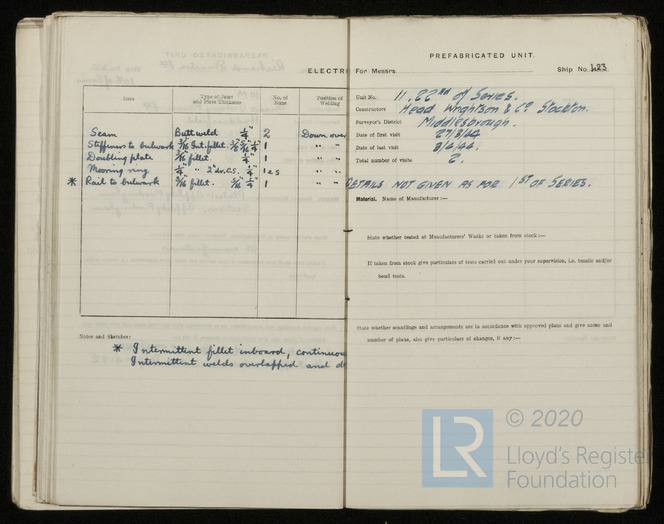 ELECTR
Item
Type of Joint and Plate Thickness
No. of Items
Position of Welding
Seam Butt weld 1/4" 2 Down over
Stiffeners to bulwark 3/16 Int. fillet. 1
Doubling plate 3/16 fillet. 1/4" 1 " "
Mooring ring 1/4" 2" dr. C.S. 1/4" " "
* Rail to bulwark 3/16 fillet. 3/16 1/4" 1 " "
Notes and Sketches:
* Intermittent fillet inboard, continuou
Intermittent welds overlapped and
PREFABRICATED UNIT.
For Messrs. Ship No. 423
Unit No. 11. 22nd of Series.
Constructors Head Wrightson & Co. Stockton.
Surveyor's District Middlesbrough.
Date of first visit 27/3/44
Date of last visit 3/4/44.
Total number of visits 2.
DETAILS NOT GIVEN AS FOR 1ST OF SERIES.
Material. Name of Manufacturer:—
State whether tested at Manufacturers' Works or taken from stock:—
If taken from stock give particulars of tests carried out under your supervision, i.e. tensile and/or
bend tests.
State whether scantlings and arrangements are in accordance with approved plans and give name and
number of plans, also give particulars of changes, if any:—
LR
© 2020
Lloyd's Register
Foundation